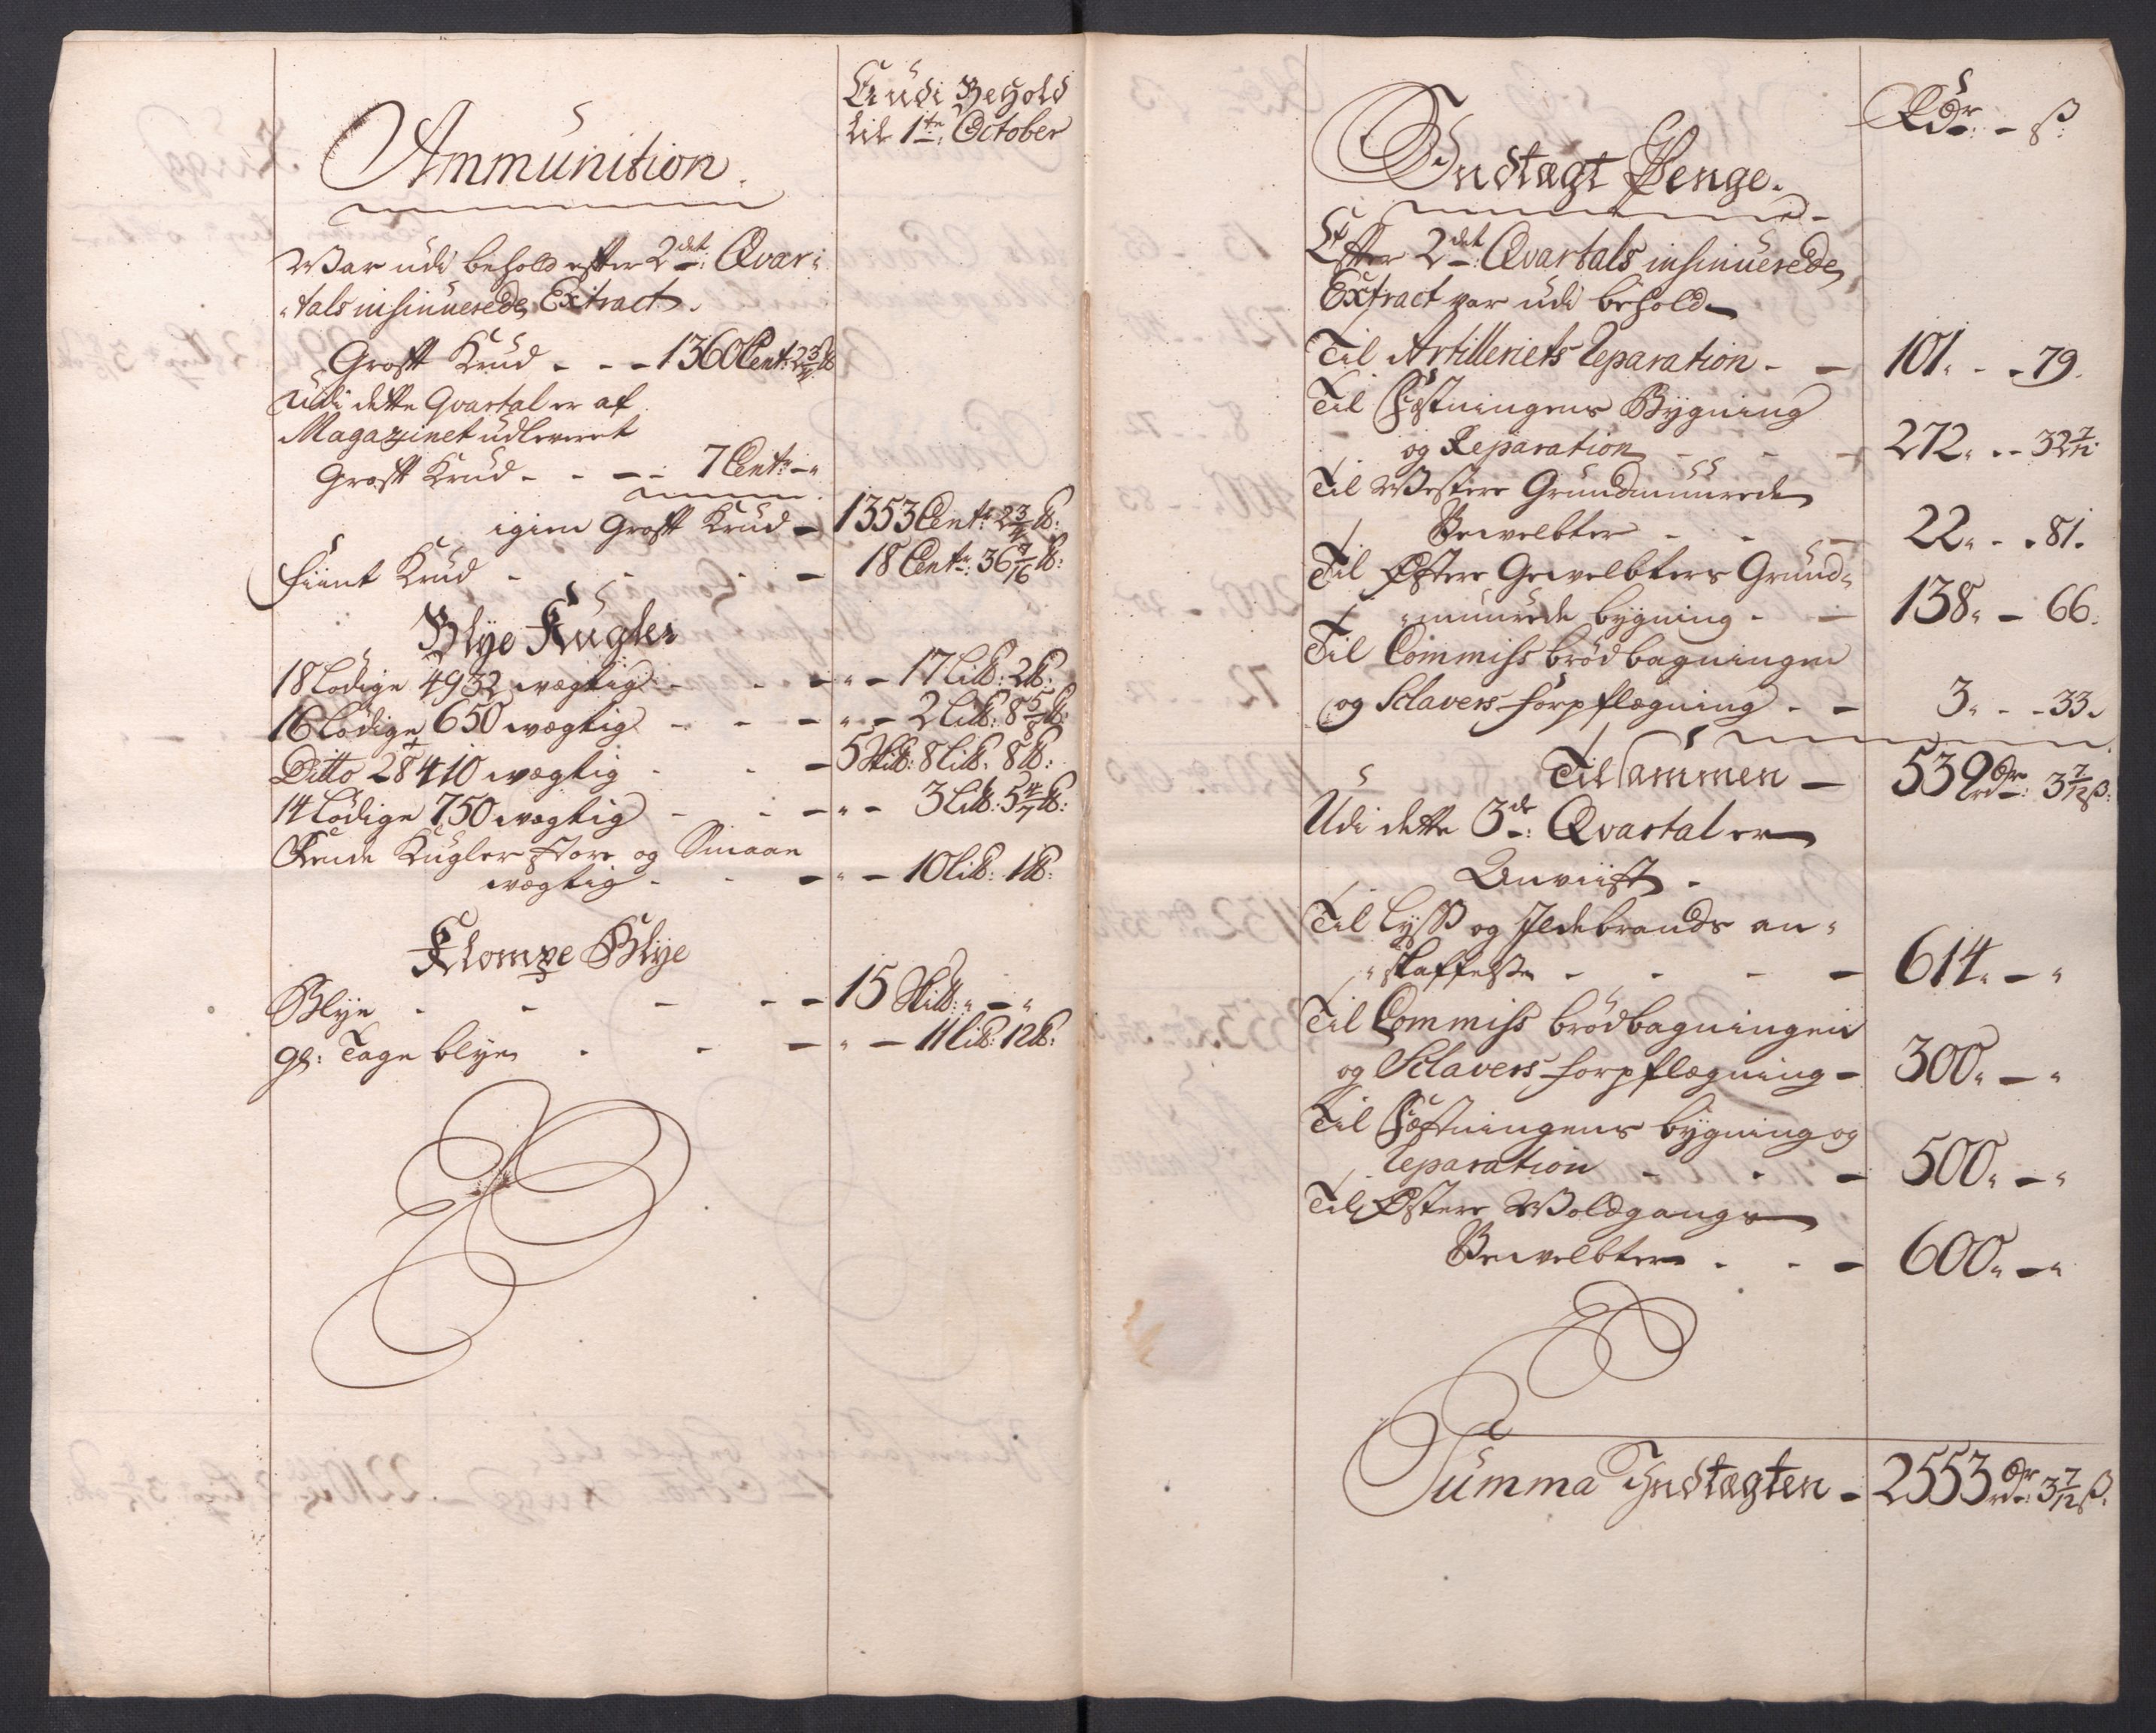 Er udi Behold
til 1te October
Ammunition.
War udi behold efter 2det Qvar-
tals insinuerede Extract.
Groft Krud - - - 1360 Cent: 23/4 ℔
Udi dette Qvartal er af
Magazinet udleveret
Groft Krud - - - 7 Centr - "
igien Groft Krud - 1353 Centr 23/4 ℔:
Fiint Krud - - - 18 Centr: 36 7/16 ℔:
Blye Kugler
18 Lödige 4932 wægtig - - - " - 17 Li℔: 2℔:
16 Lödige 650 wægtig - - - " - 2 Li℔: 8 5/8 ℔:
Ditto 28410 wægtig - - - 5 Ski℔: 8 Li℔: 8℔:
14 Lödige 750 wægtig - - - " - 3 Li℔: 5 4/7 ℔:
Kugler store og Smaae
wægtig - - - " - 10 Li℔: 1℔:
Klompe Blye
Blye - - - - - 15 Ski℔: " - "
gl: Tage blye - - - " - 11 Li℔: 12℔:
Rdr: - ß:
Indtægt Penge.
Efter 2det: Qvartals insinuerede
Extract var udi behold
Til Artilleriets Reparation - - 101. - - 79.
Til Fæstningens Bygning
og Reparation - - - 272. - - 32 7/12.
Til Westere Grundmuurede
Gewelbter - - - 22. - - 81.
Til Östere Gewelbters Grund-
muurede bygning - - 138. - 66.
Til Commiss brödbagningen
og Sclavers forpflægning - - 3. - - 33.
Tilsammen - 539 rdr: 3 7/12 ß:
Udi dette 3de: Qvartal er
Anviist.
Til Lyss og Ildebrands an-
skaffelse - - - - 614. - "
Til Commiss brödbagningen
og Sclavers forpflægning - 300. - "
Til Fæstningens bygning og
Reparation - - - 500. - "
Til Östere Woldgangs
Gewelbter - - - 600. - "
Summa Indtægten - 2553 rdr: 3 7/12 ß.